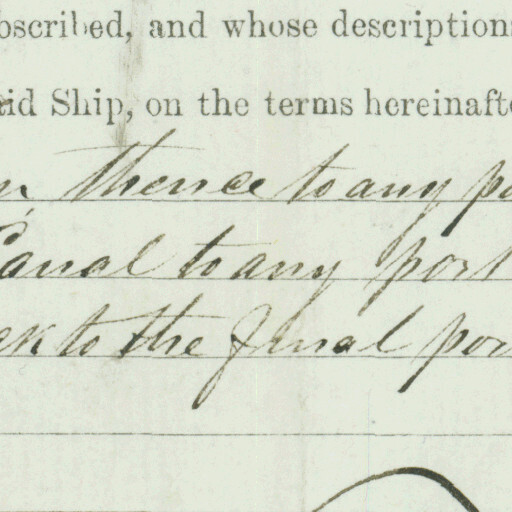 bscribed, and whose descriptions
aid Ship, on the terms hereinafte
n, thence to any po
Canal to any port
ck to the final por